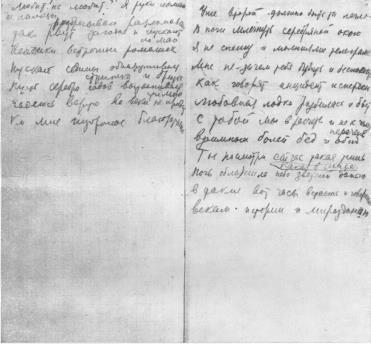 Любит? не любит? Я руки ломаю
и пальцы
разбрасываю разломавши
так рвут загадав и пускают
по маю
венчики встречных ромашек
Пускай седины обнаруживает
стрижка и бритье
Пусть серебро годов вызванивает
уймою
надеюсь верую во веки не придет
ко мне позорное благоразумие
Уже второй должно быть ты легла
В ночи Млечпуть серебряной Окою
Я не спешу и молниями телеграмм
Мне незачем тебя будить и беспокоить
как говорят инцидент исперчен
любовная лодка разбилась о быт
С тобой мы в расчете и не к чему
перечень
взаимных болей бед и обид
Ты посмотри какая в мире тишь
Ночь обложила небо звездной данью
в такие вот часы встаешь и говоришь
векам истории и мирозданью